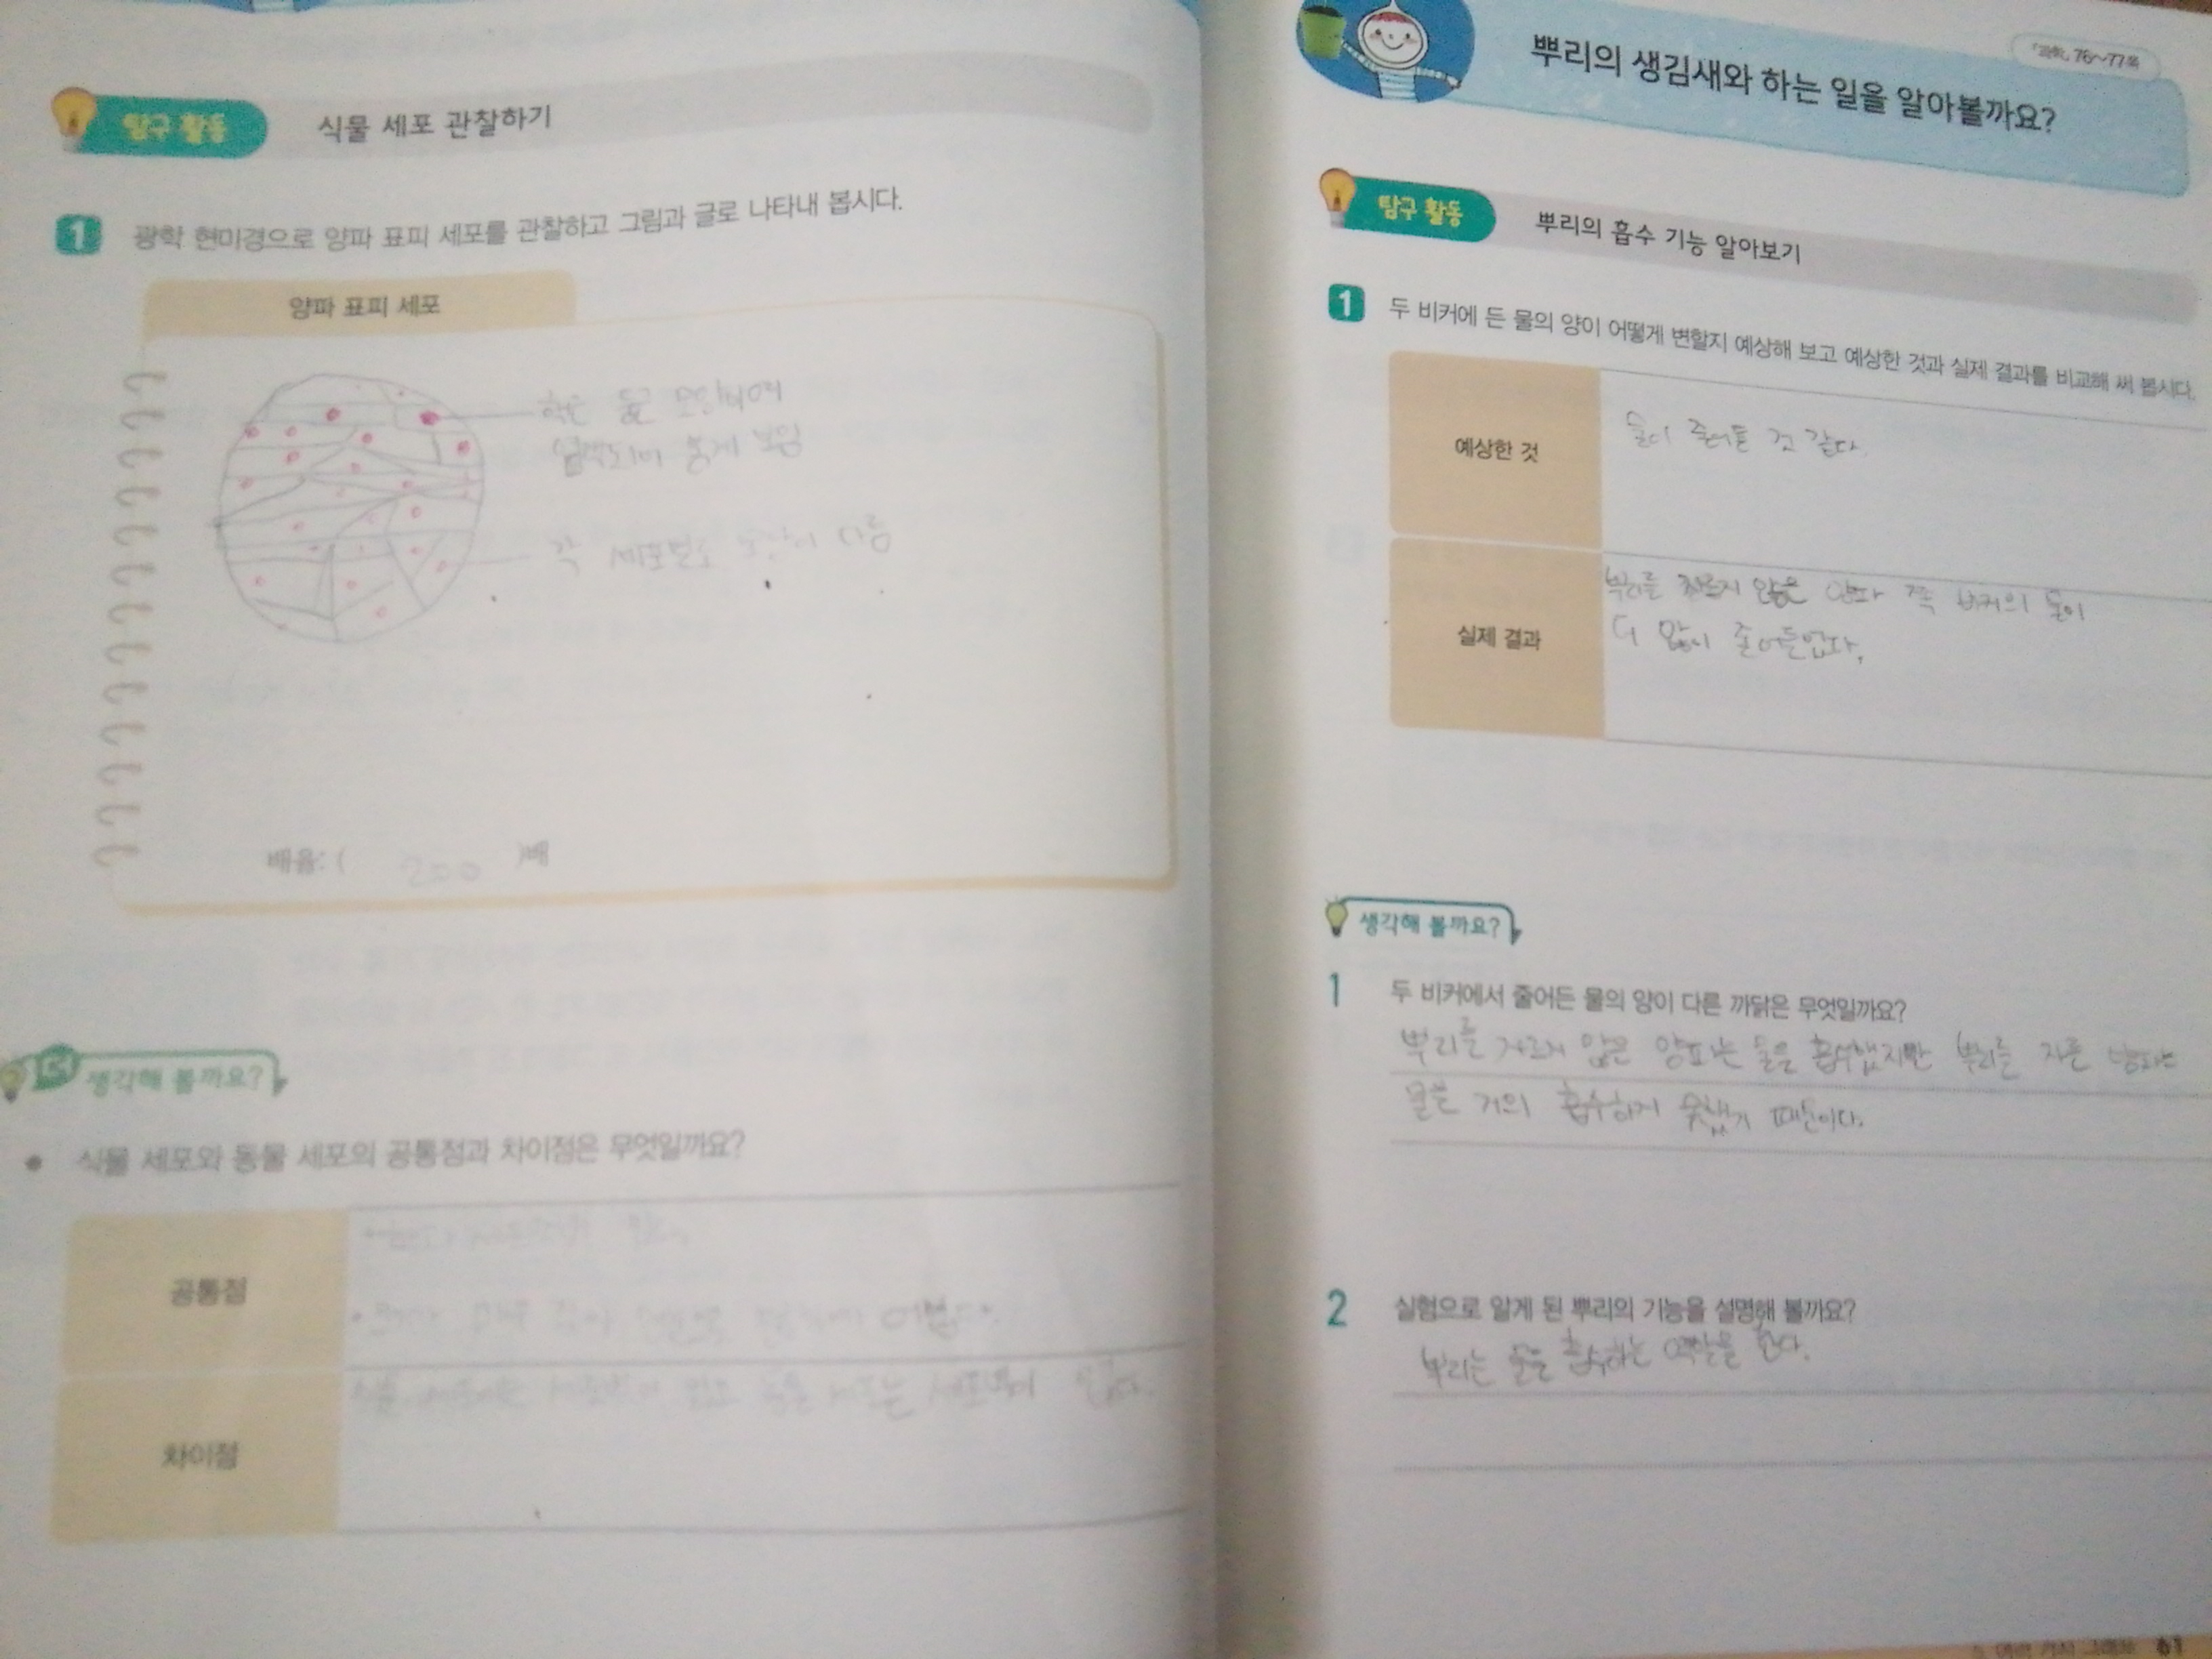 탐구 활동 식물 세포 관찰하기
1 광학 현미경으로 양파 표피 세포를 관찰하고 그림과 글로 나타내 봅시다.
양파 표피 세포
핵은 둥근 모양이며
염색되어 붉게 보임
각 세포면도 다름
배율: ( 200 )배
생각해 볼까요?
식물 세포와 동물 세포의 공통점과 차이점은 무엇일까요?
공통점
있다.
어렵다.
차이점
없다.
「과학」 76~77쪽
뿌리의 생김새와 하는 일을 알아볼까요?
탐구 활동 뿌리의 흡수 기능 알아보기
1 두 비커에 든 물의 양이 어떻게 변할지 예상해 보고 예상한 것과 실제 결과를 비교해 써 봅시다.
예상한 것
물이 줄어들 것 같다.
실제 결과
뿌리를 자르지 않은 양파 쪽 비커의 물이
더 많이 줄어든었다.
생각해 볼까요?
1 두 비커에서 줄어든 물의 양이 다른 까닭은 무엇일까요?
뿌리를 자르지 않은 양파는 물을 흡수했지만 뿌리를 자른 양파는
물을 거의 흡수하지 못했기 때문이다.
2 실험으로 알게 된 뿌리의 기능을 설명해 볼까요?
뿌리는 물을 흡수하는 역할을 한다.
61